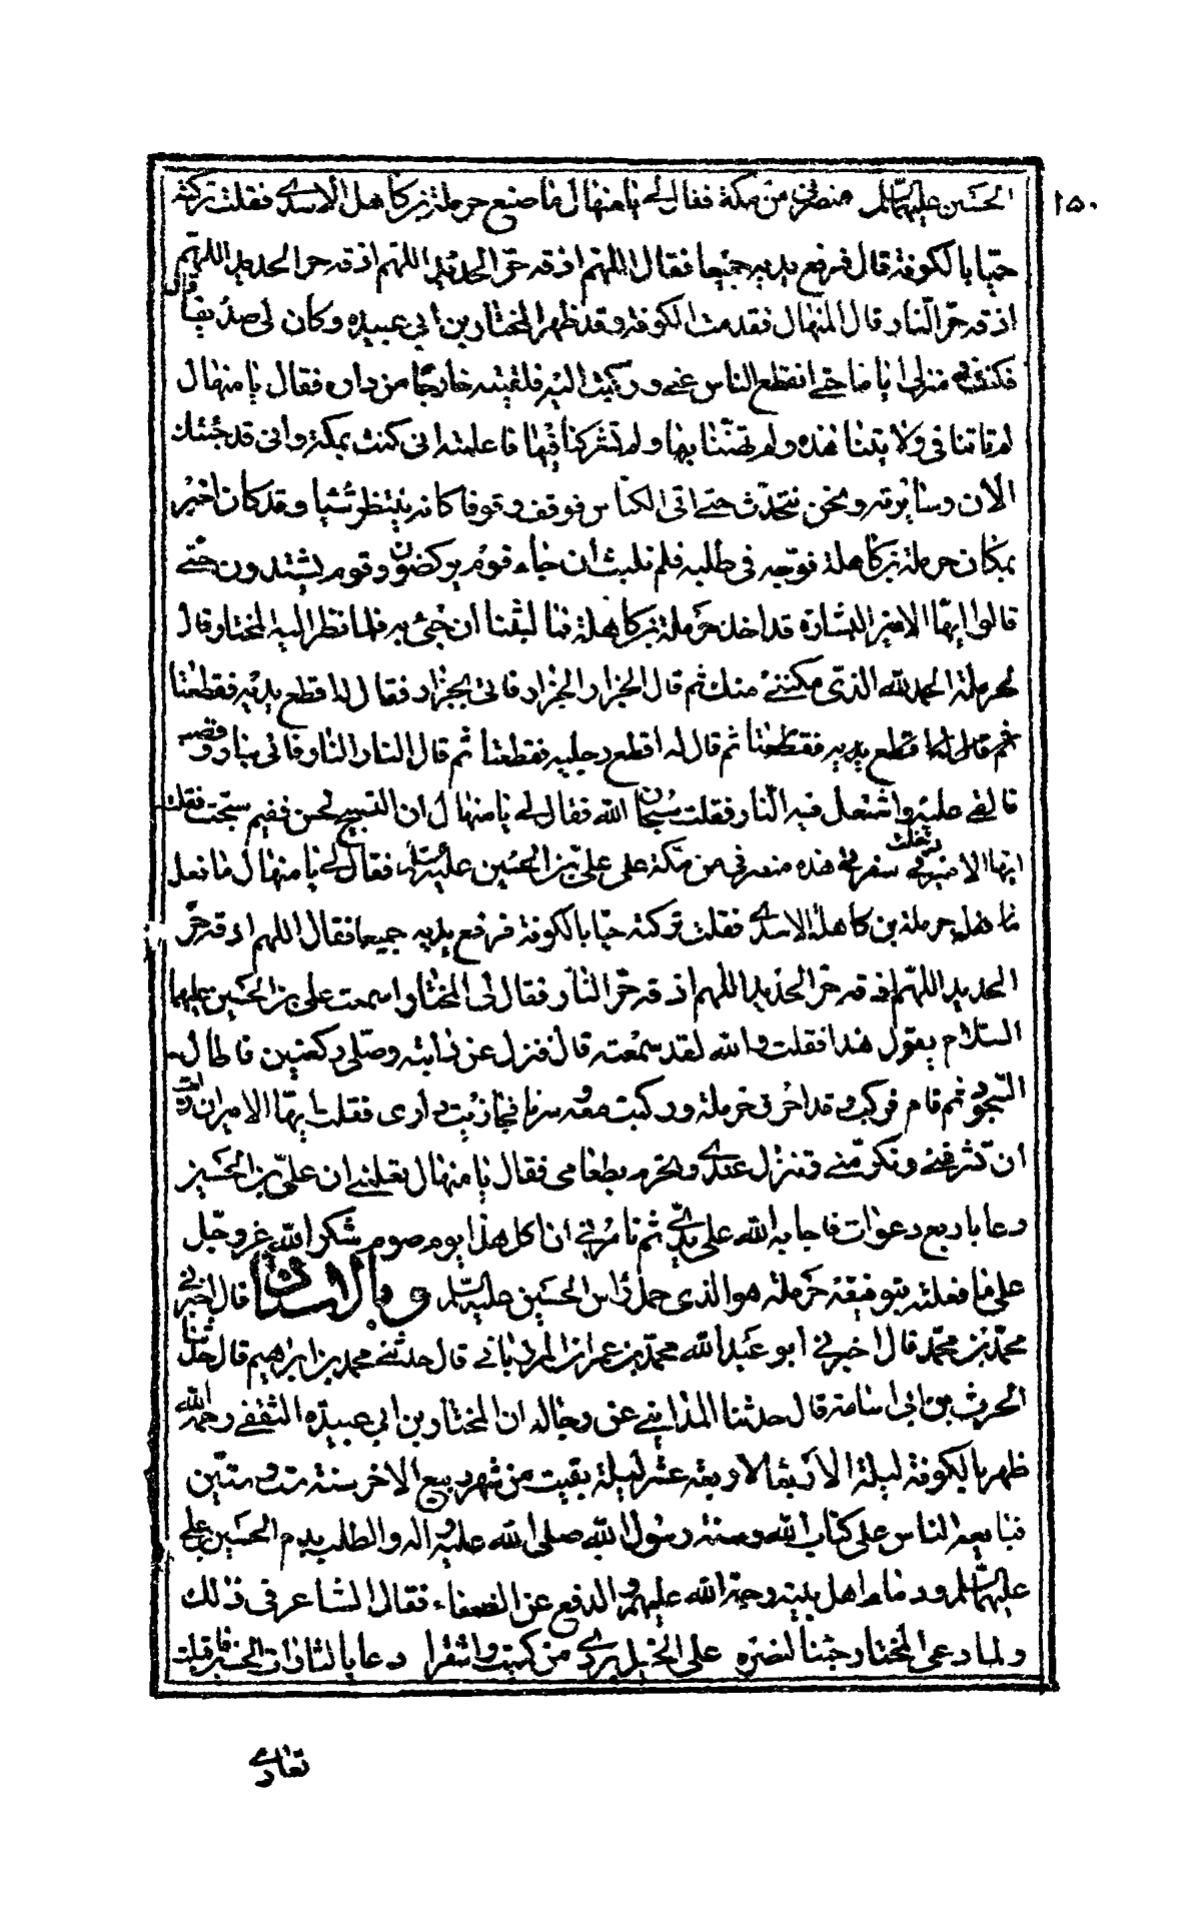 ١٥٠
الحسين عليهما السلم منصرفي من مكة فقال لي يا منهال ما صنع حرملة بن كاهل الاسدي فقلت تركته
حيا بالكوفة قال فرفع يديه جميعا فقال اللهم اذقه حر الحديد اللهم اذقه حر الحديد اللهم
اذقه حر النار قال المنهال فقدمت الكوفة وقد ظهر المختار بن ابي عبيدة وكان لي صديقا قال
فكنت في منزلي اياما حتى انقطع الناس عني وركبت اليه فلقيته خارجا من داره فقال يا منهال
لم تاتنا في ولايتنا هذه ولم تهنّنا بها ولم تشركنا فيها فاعلمته اني كنت بمكة واني قد جئتك
الان وسايرته ونحن نتحدث حتى اتى الكناس فوقف وقوفا كانه ينتظر شيئا وقد كان اخبر
بمكان حرملة بن كاهلة فوجه في طلبه فلم نلبث ان جاء قوم يركضون وقوم يشتدون حتى
قالوا ايها الامير البشارة قد اخذ حرملة بن كاهلة فما لبثنا ان جيئ به فلما نظر اليه المختار قال
لحرملة الحمد لله الذي مكنني منك ثم قال الجزار الجزار فاتى بجزار فقال له اقطع يديه فقطعتا
ثم قال له اقطع يديه فقطعتا ثم قال له اقطع رجليه فقطعتا ثم قال النار النار فاتى بنار وقصب
فالقى عليه واشتعل فيه النار فقلت سبحان الله فقال لي يا منهال ان التسبيح لحسن ففيم سبحت فقلت
ايها الامير دخلت في سفرتي هذه منصرفي من مكة على علي بن الحسين عليه السلم فقال لي يا منهال ما فعل
حرملة بن كاهلة الاسدي فقلت تركته حيا بالكوفة فرفع يديه جميعا فقال اللهم اذقه حر
الحديد اللهم اذقه حر الحديد اللهم اذقه حر النار فقال لي المختار اسمعت علي بن الحسين عليهما
السلام يقول هذا فقلت والله لقد سمعته قال فنزل عن دابته وصلى ركعتين فاطال
السجود ثم قام فركب وقد احرق حرملة وركبت معه سرنا فحاذيت داري فقلت ايها الامير ان رايت
ان تشرفني وتكرمني وتنزل عندي وتحرم بطعامي فقال يا منهال تعلمني ان علي بن الحسين
دعا باربع دعوات فاجابه الله على يدي ثم تامرني ان اكل هذا يوم صوم شكر الله عز وجل
على ما فعلته بتوفيقه حرملة هو الذي حمل راس الحسين عليه السلم وبالاسناد قال اخبرني
محمد بن محمد قال اخبرني ابو عبد الله محمد بن عمران المرزباني قال حدثني محمد بن ابراهيم قال حدثنا
الحرث بن ابي اسامة قال حدثنا المدايني عن رجاله ان المختار بن ابي عبيدة الثقفي رحمه الله
ظهر بالكوفة ليلة الاربعا لاربعة عشر ليلة بقيت من شهر ربيع الاخر سنة ست وستين
فبايعه الناس على كتاب الله وسنة رسول الله صلى الله عليه واله والطلب بدم الحسين بن علي
عليهما السلم ودماء اهل بيته رحمة الله عليهم والدفع عن الضعفاء فقال الشاعر في ذلك
ولما دعى المختار جئنا لنصره على الخيل تردي من كميت واشقرا دعا يا لثارات الحسين فاقبلت
تعادى